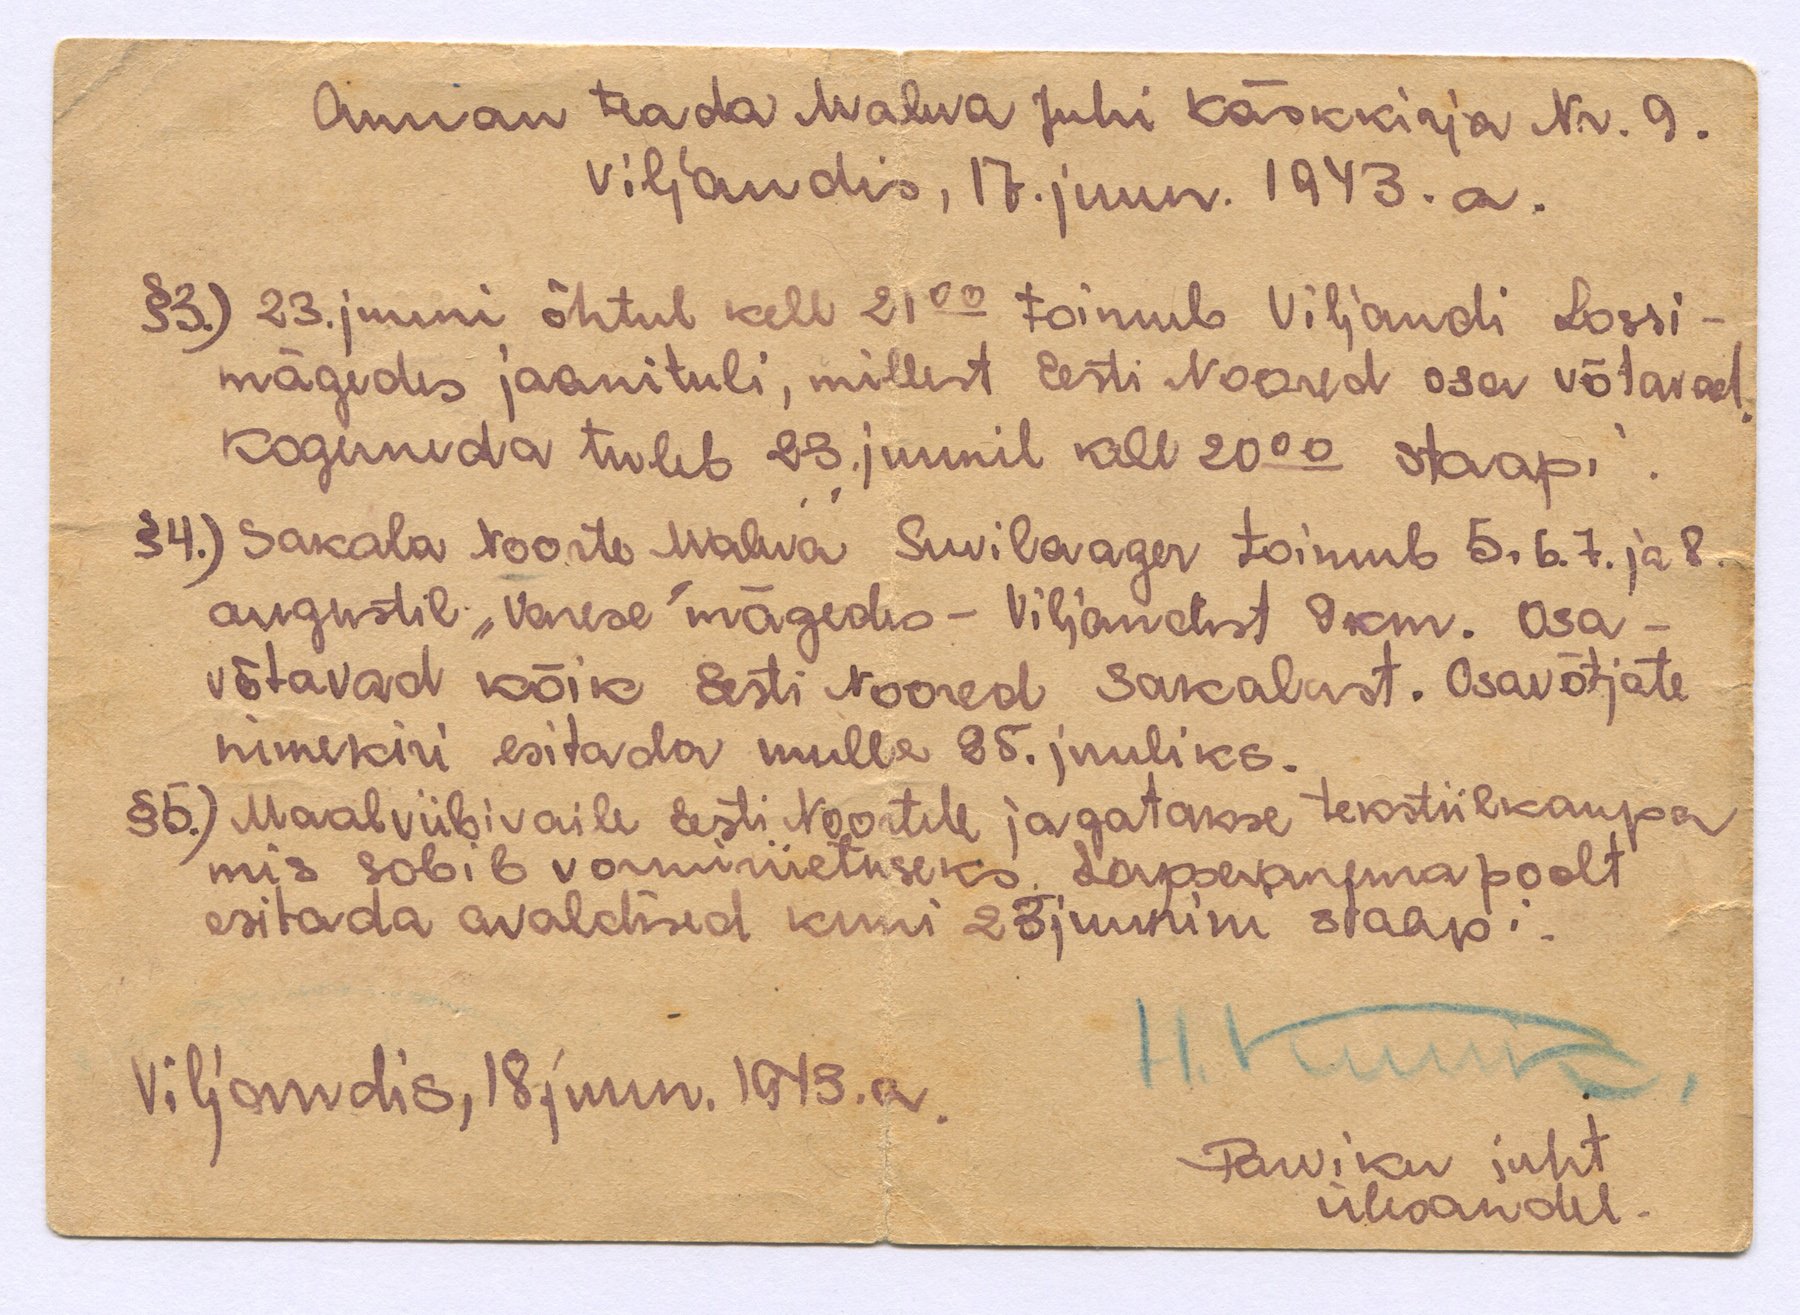 Annan teada Malwa Juhi Käskkirja Nr. 9.
Viljandis, 17. juun. 1943. a.
§3.) 23. juuni õhtul kell 21⁰⁰ toimub Viljandi Lossi-
mägedes jaanituli, millest Eesti Noored osa võtavad.
Koguneda tuleb 23. juunil kell 20⁰⁰ staapi.
§4.) Sakala Noorte Malwa Suvilaager toimub 5. 6. 7. ja 8.
augustil „Verese" mägedes - Viljandist 9 km. Osa-
võtavad kõik Eesti Noored Sakalast. Osavõtjate
nimekiri esitada mulle 25. juuliks.
§5.) Maalviibivaile Eesti Noortele jagatakse tekstiilkaupa
mis sobib vormiriietuseks. Lapsevanema poolt
esitada avaldised kuni 23 juunini staapi.
Viljandis, 18 juun. 1943. a.
H.
juht
ülesandel.